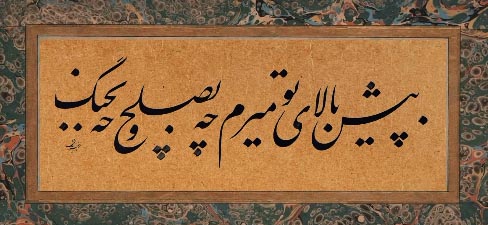 پیش بالای تو میرم چه بصلح و چه بجنگ